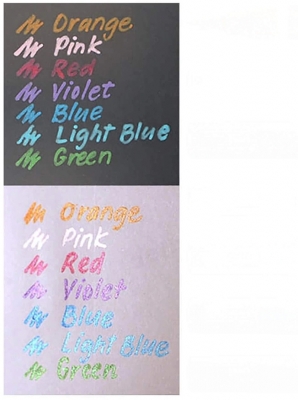 Orange
Pink
Red
Violet
Blue
Light Blue
Green
Orange
Pink
Red
Violet
Blue
Light Blue
Green